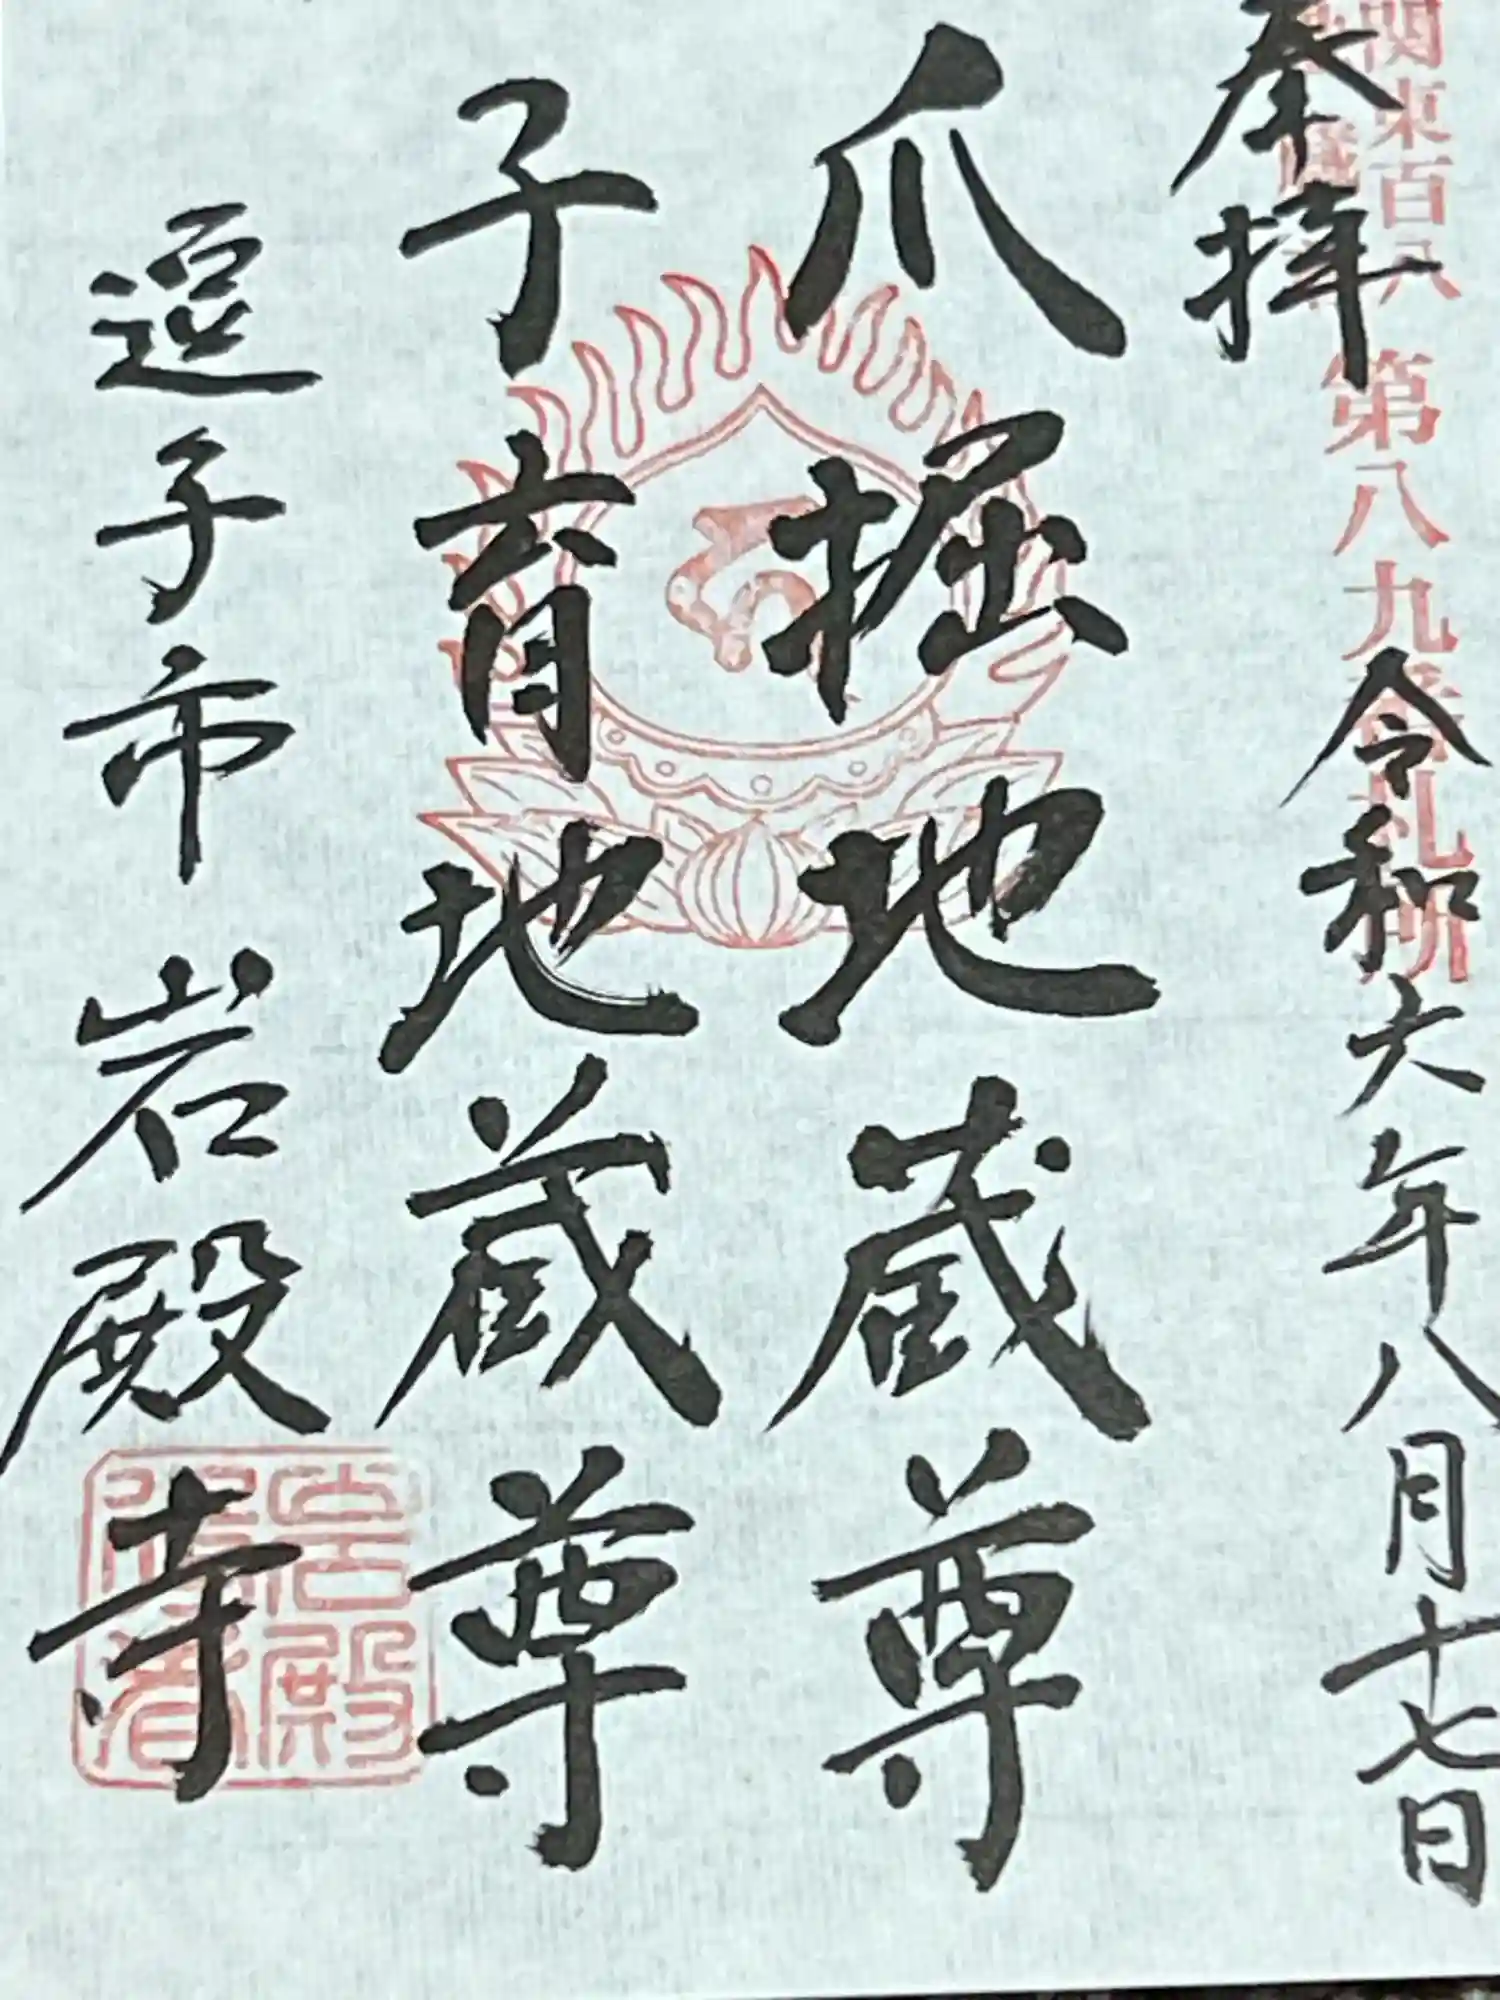 関東百八
第八九番札所
奉拝
令和六年八月十七日
爪掘地蔵尊
子育地蔵尊
逗子市岩殿寺